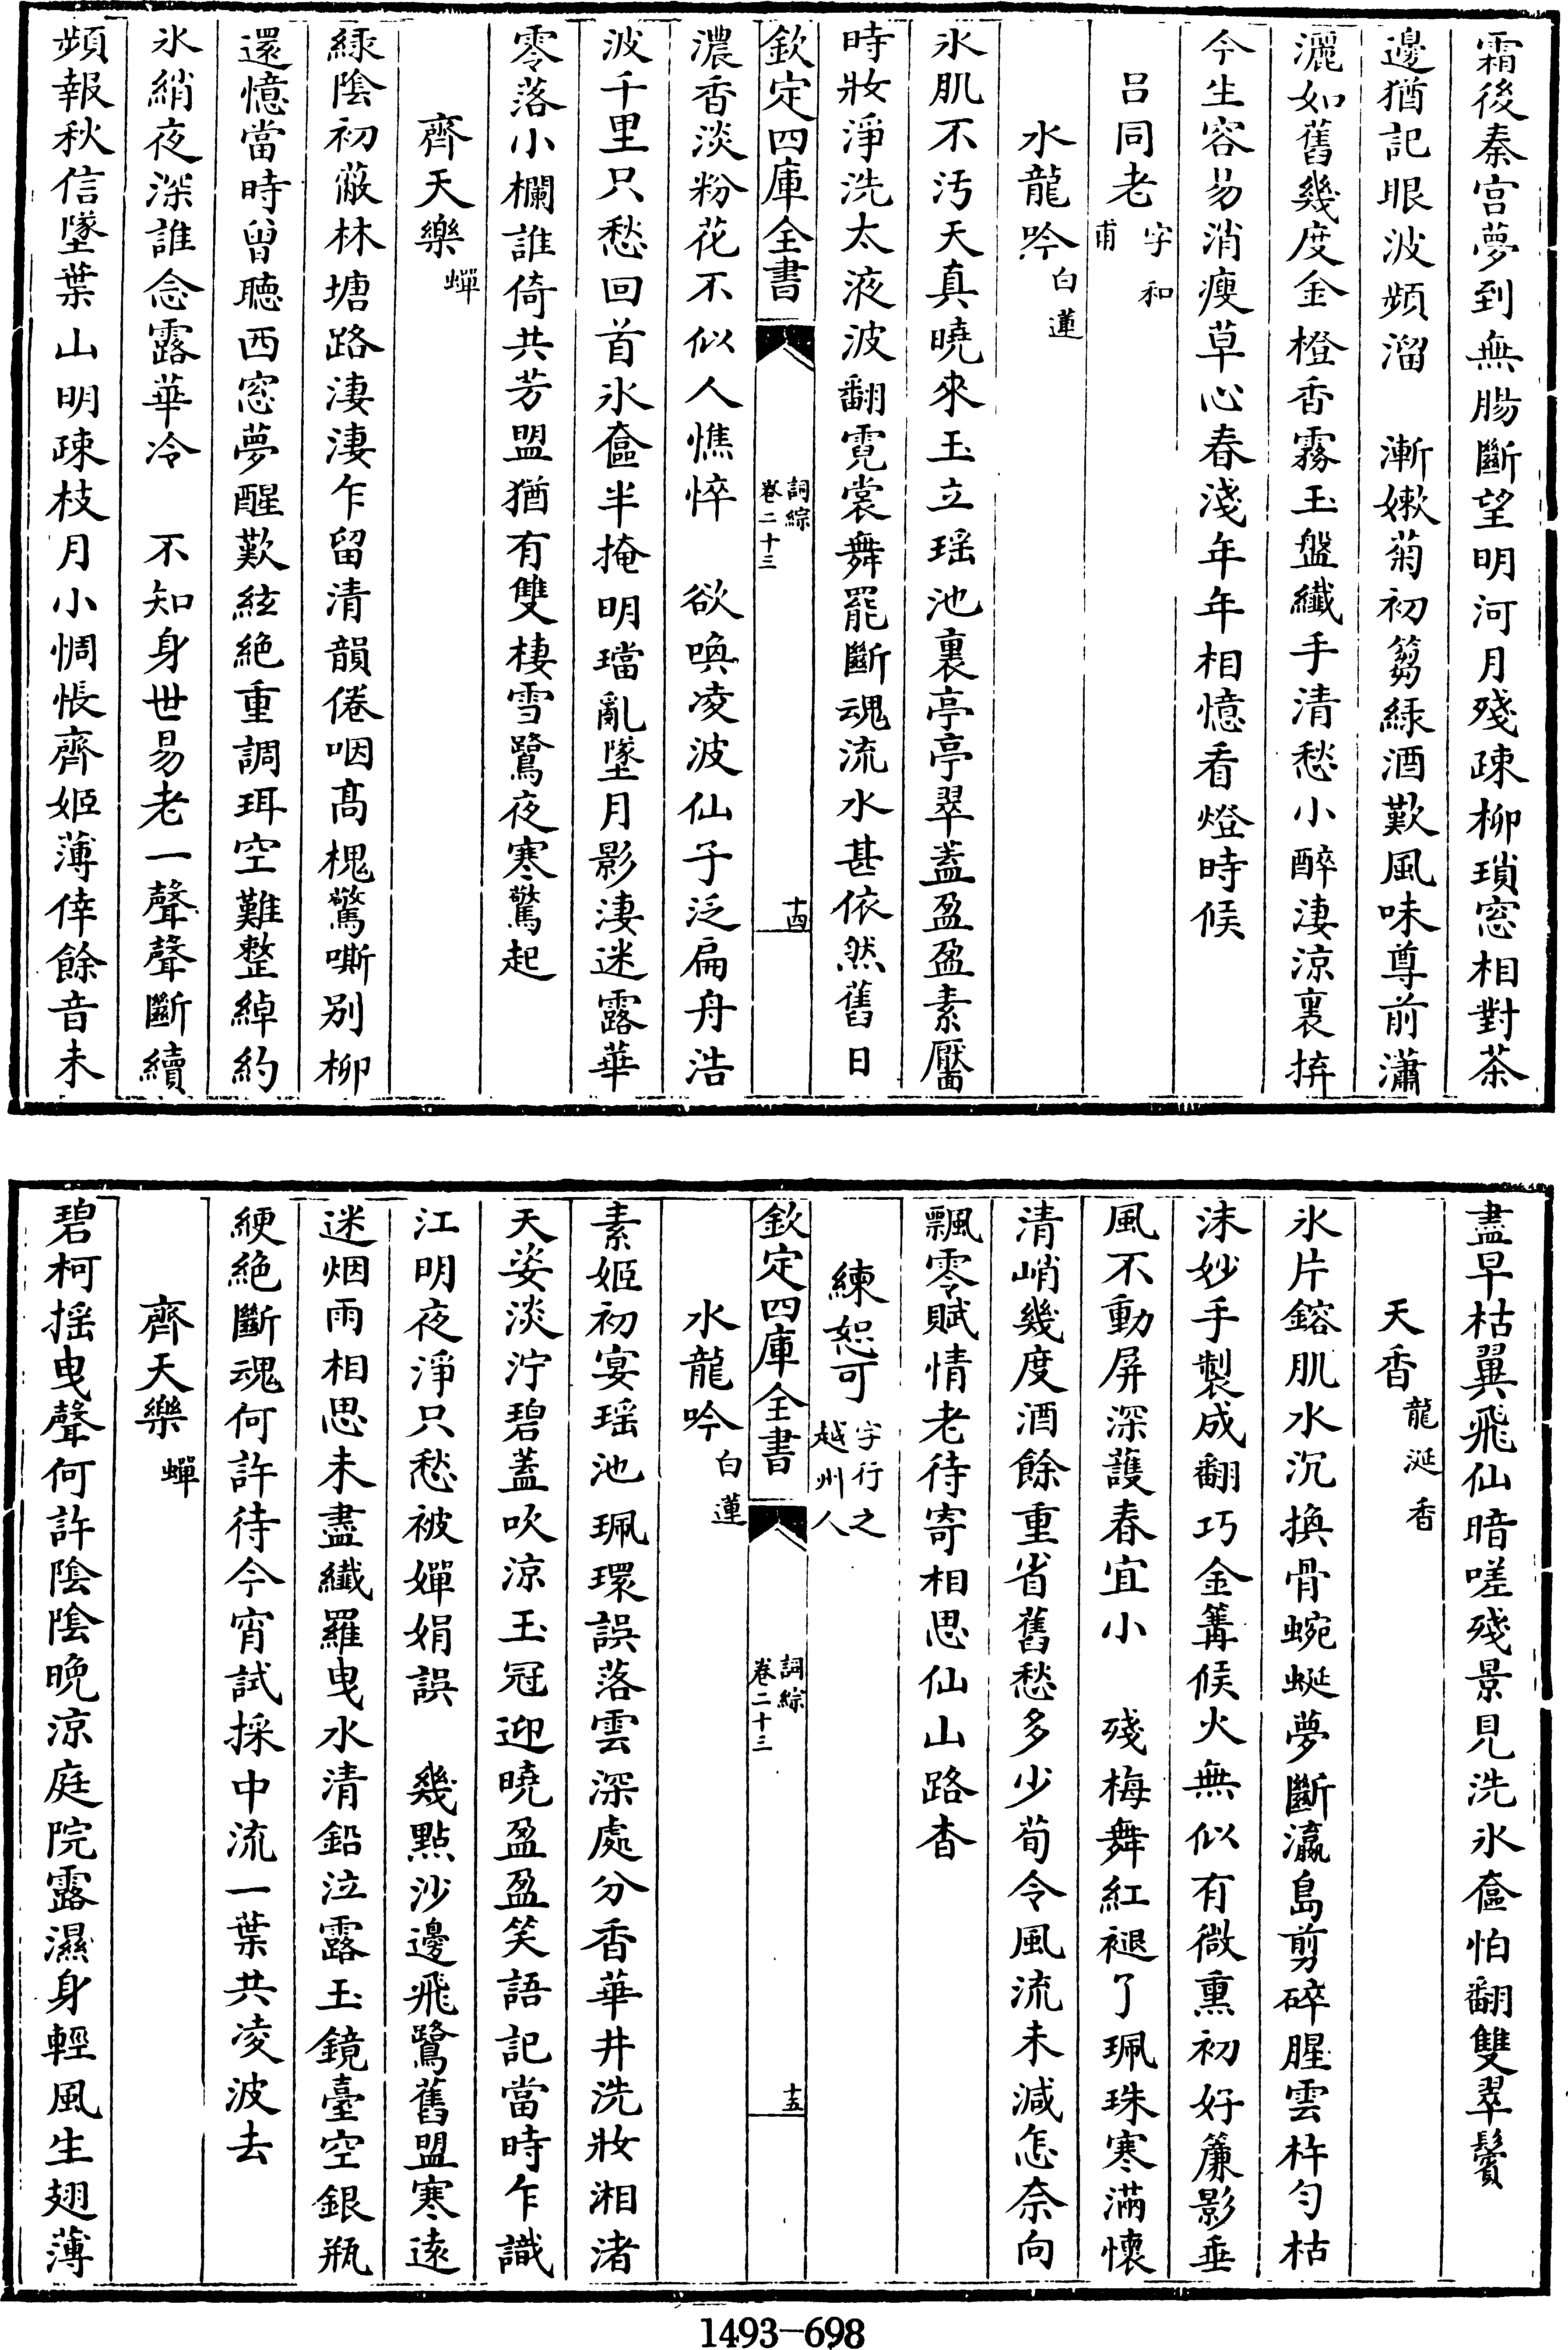 霜後秦宮夢到無腸斷望明河月殘疎柳瑣窓相對茶
邊猶記眼波頻溜　漸嫰菊初篘綠酒歎風味尊前瀟
灑如舊幾度金橙香霧玉盤纖手清愁小醉淒涼裏拚
今生容易消瘦草心春淺年年相憶看燈時候
呂同老字和甫
水龍吟白蓮
氷肌不汚天真曉來玉立瑤池裏亭亭翠盖盈盈素靨
時妝淨洗太液波翻霓裳舞罷斷魂流水甚依然舊日
欽定四庫全書　詞綜卷二十三　十四
濃香淡粉花不似人憔悴　欲喚凌波仙子泛扁舟浩
波千里只愁回首氷奩半掩明璫亂墜月影淒迷露華
零落小欄誰倚共芳盟猶有雙棲雪鷺夜寒驚起
齊天樂蟬
緑陰初蔽林塘路淒淒乍留清韻倦咽髙槐驚嘶别柳
還憶當時曾聽西窓夢醒歎絃絶重調珥空難整綽約
氷綃夜深誰念露華冷　不知身世易老一聲聲斷續
頻報秋信墜葉山明疎枝月小惆悵齊姬薄倖餘音未
盡早枯翼飛仙暗嗟殘景見洗氷奩怕翻雙翠鬢
天香龍涎香
氷片鎔肌水沉換骨蜿蜒夢斷瀛島剪碎腥雲杵勻枯
沫妙手製成翻巧金篝候火無似有微熏初好簾影垂
風不動屏深護春宜小　殘梅舞紅褪了珮珠寒滿懷
清峭幾度酒餘重省舊愁多少荀令風流未減怎奈向
飄零賦情老待寄相思仙山路杳
練恕可字行之越州人
欽定四庫全書　詞綜卷二十三　十五
水龍吟白蓮
素姬初宴瑤池珮環誤落雲深處分香華井洗妝湘渚
天姿淡泞碧蓋吹涼玉冠迎曉盈盈笑語記當時乍識
江明夜淨只愁被嬋娟誤　幾點沙邊飛鷺舊盟寒遠
迷烟雨相思未盡纖羅曳水清鉛泣露玉鏡臺空銀瓶
綆絶斷魂何許待今宵試採中流一葉共凌波去
齊天樂蟬
碧柯揺曳聲何許陰陰晚涼庭院露濕身輕風生翅薄
1493-698